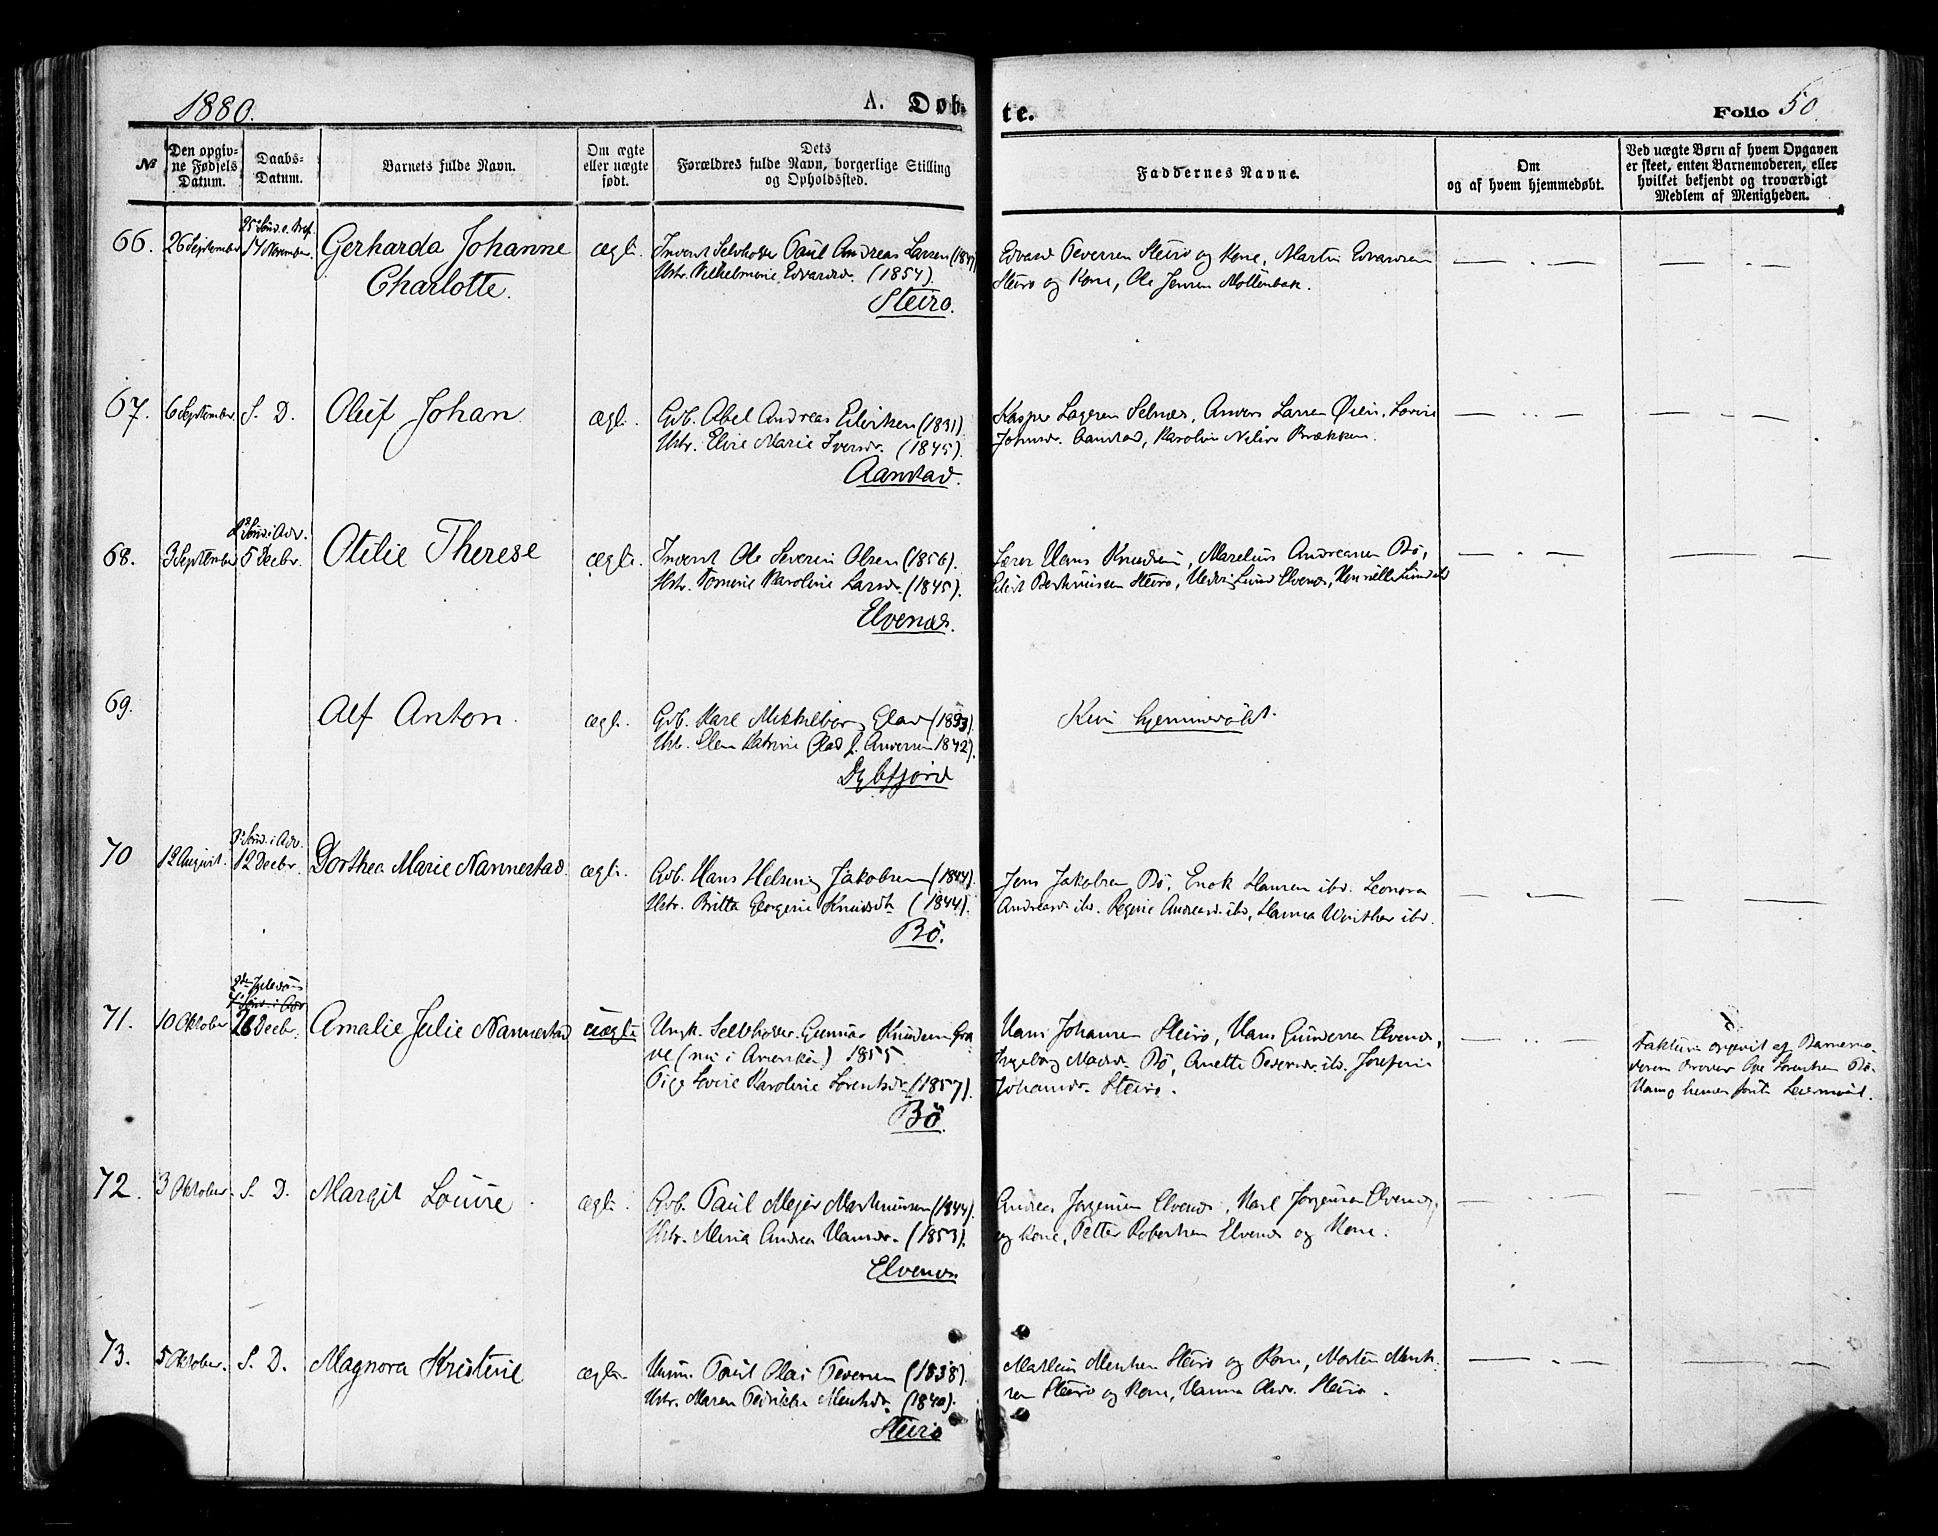 1880.
A. Døb-
te.
Folio 50.
№
Den opgiv-
ne Fødsels
Datum.
Daabs-
Datum.
Barnets fulde Navn.
Om ægte
eller uægte
født.
Dets
Forældres fulde Navn, borgerlige Stilling
og Opholdssted.
Faddernes Navne.
Om
og af hvem hjemmedøbt.
Ved uægte Børn af hvem Opgaven
er skeet, enten Barnemoderen, eller
hvilket bekjendt og troværdigt
Medlem af Menigheden.
66.
26 September
14 November.
Gerharda Johanne
Charlotte.
ægte.
Inderst Selvholder Paul Andreas Larsen
Hstr. Vilhelmine Edvardsd. (1854).
Steiro.
Edvard Pedersen Steiro og Kone, Martin Edvardsen
Steiro og Kone, Ole Jensen Möllenbak.
67.
6 September
S. D.
Oluf Johan
ægte.
Gdb. Abel Andreas (1831).
Hstr. Marie Iversd. (1845).
Aanstad.
Kasper Selnæs, Anders Larsen Øien,
Aanstad, Karoline Brækken.
68.
3 September
2 Sönd. i Adv.
5 Decbr.
Otilie Therese
ægte.
Inderst Ole Severin Olsen (1856).
Hstr. Tomine Karoline Larsd. (1845).
Elvenæs.
Lærer Hans Knudsen, Marelius Andreasen Bö,
Steiro, Lund Elvenæs,
69.
Alf Anton.
ægte.
Gdb. Karl Glad
Hstr. Katrine Glad f. Andersen 1842).
Dybfjord
Kun hjemmedöbt.
70
12 August.
3 Sönd. i Adv.
12 Decbr.
Dorthea Marie Nannestad.
ægte.
Gdb. Hans Jakobsen (1844).
Hstr. Britta Georgine Knudsdtr (1844).
Bö.
Jens Jakobsen Bö, Enok Hansen ibd. Leonora
Andreasd. ibd. Regine Andreasd. ibd, Hanna Winther ibd.
71.
10 Oktober
2den Juledag
4 Sönd. i Adv
26 Decbr.
Amalie Julie Nannestad
uægte
Ungk. Selvholder Gunnar Knudsen
(nu i Amerika) 1855
Pige Lovise Karoline Lorentsd. (1857).
Bö.
Hans Johansen Steiro, Hans Gundersen Elvenæs,
Ingeborg Bö, Anette Pedersd. ibd. Josefine
Johansd. Steiro.
opgivet af Barnemo-
deren Broder Lorentsen Bö.
Lejermaal.
72.
3 Oktober.
S. D.
Margit Louise
ægte.
Gdb. Paul Mejer Martinussen (1844).
Hstr. Andrea Hansd. (1853).
Elvenæs
Andreas Jörgensen Elvenæs, Karl Jörgensen Elvenæs,
og Kone, Petter Robertsen Elvenæs og Kone.
73.
5 Oktober.
S. D.
Magnora Kristine
ægte.
Paul Olai Pedersen (1838).
Hstr. Maren (1840).
Steiro
Steiro og Kone, Morten
Steiro og Kone, Hanna Olsd. Steiro.